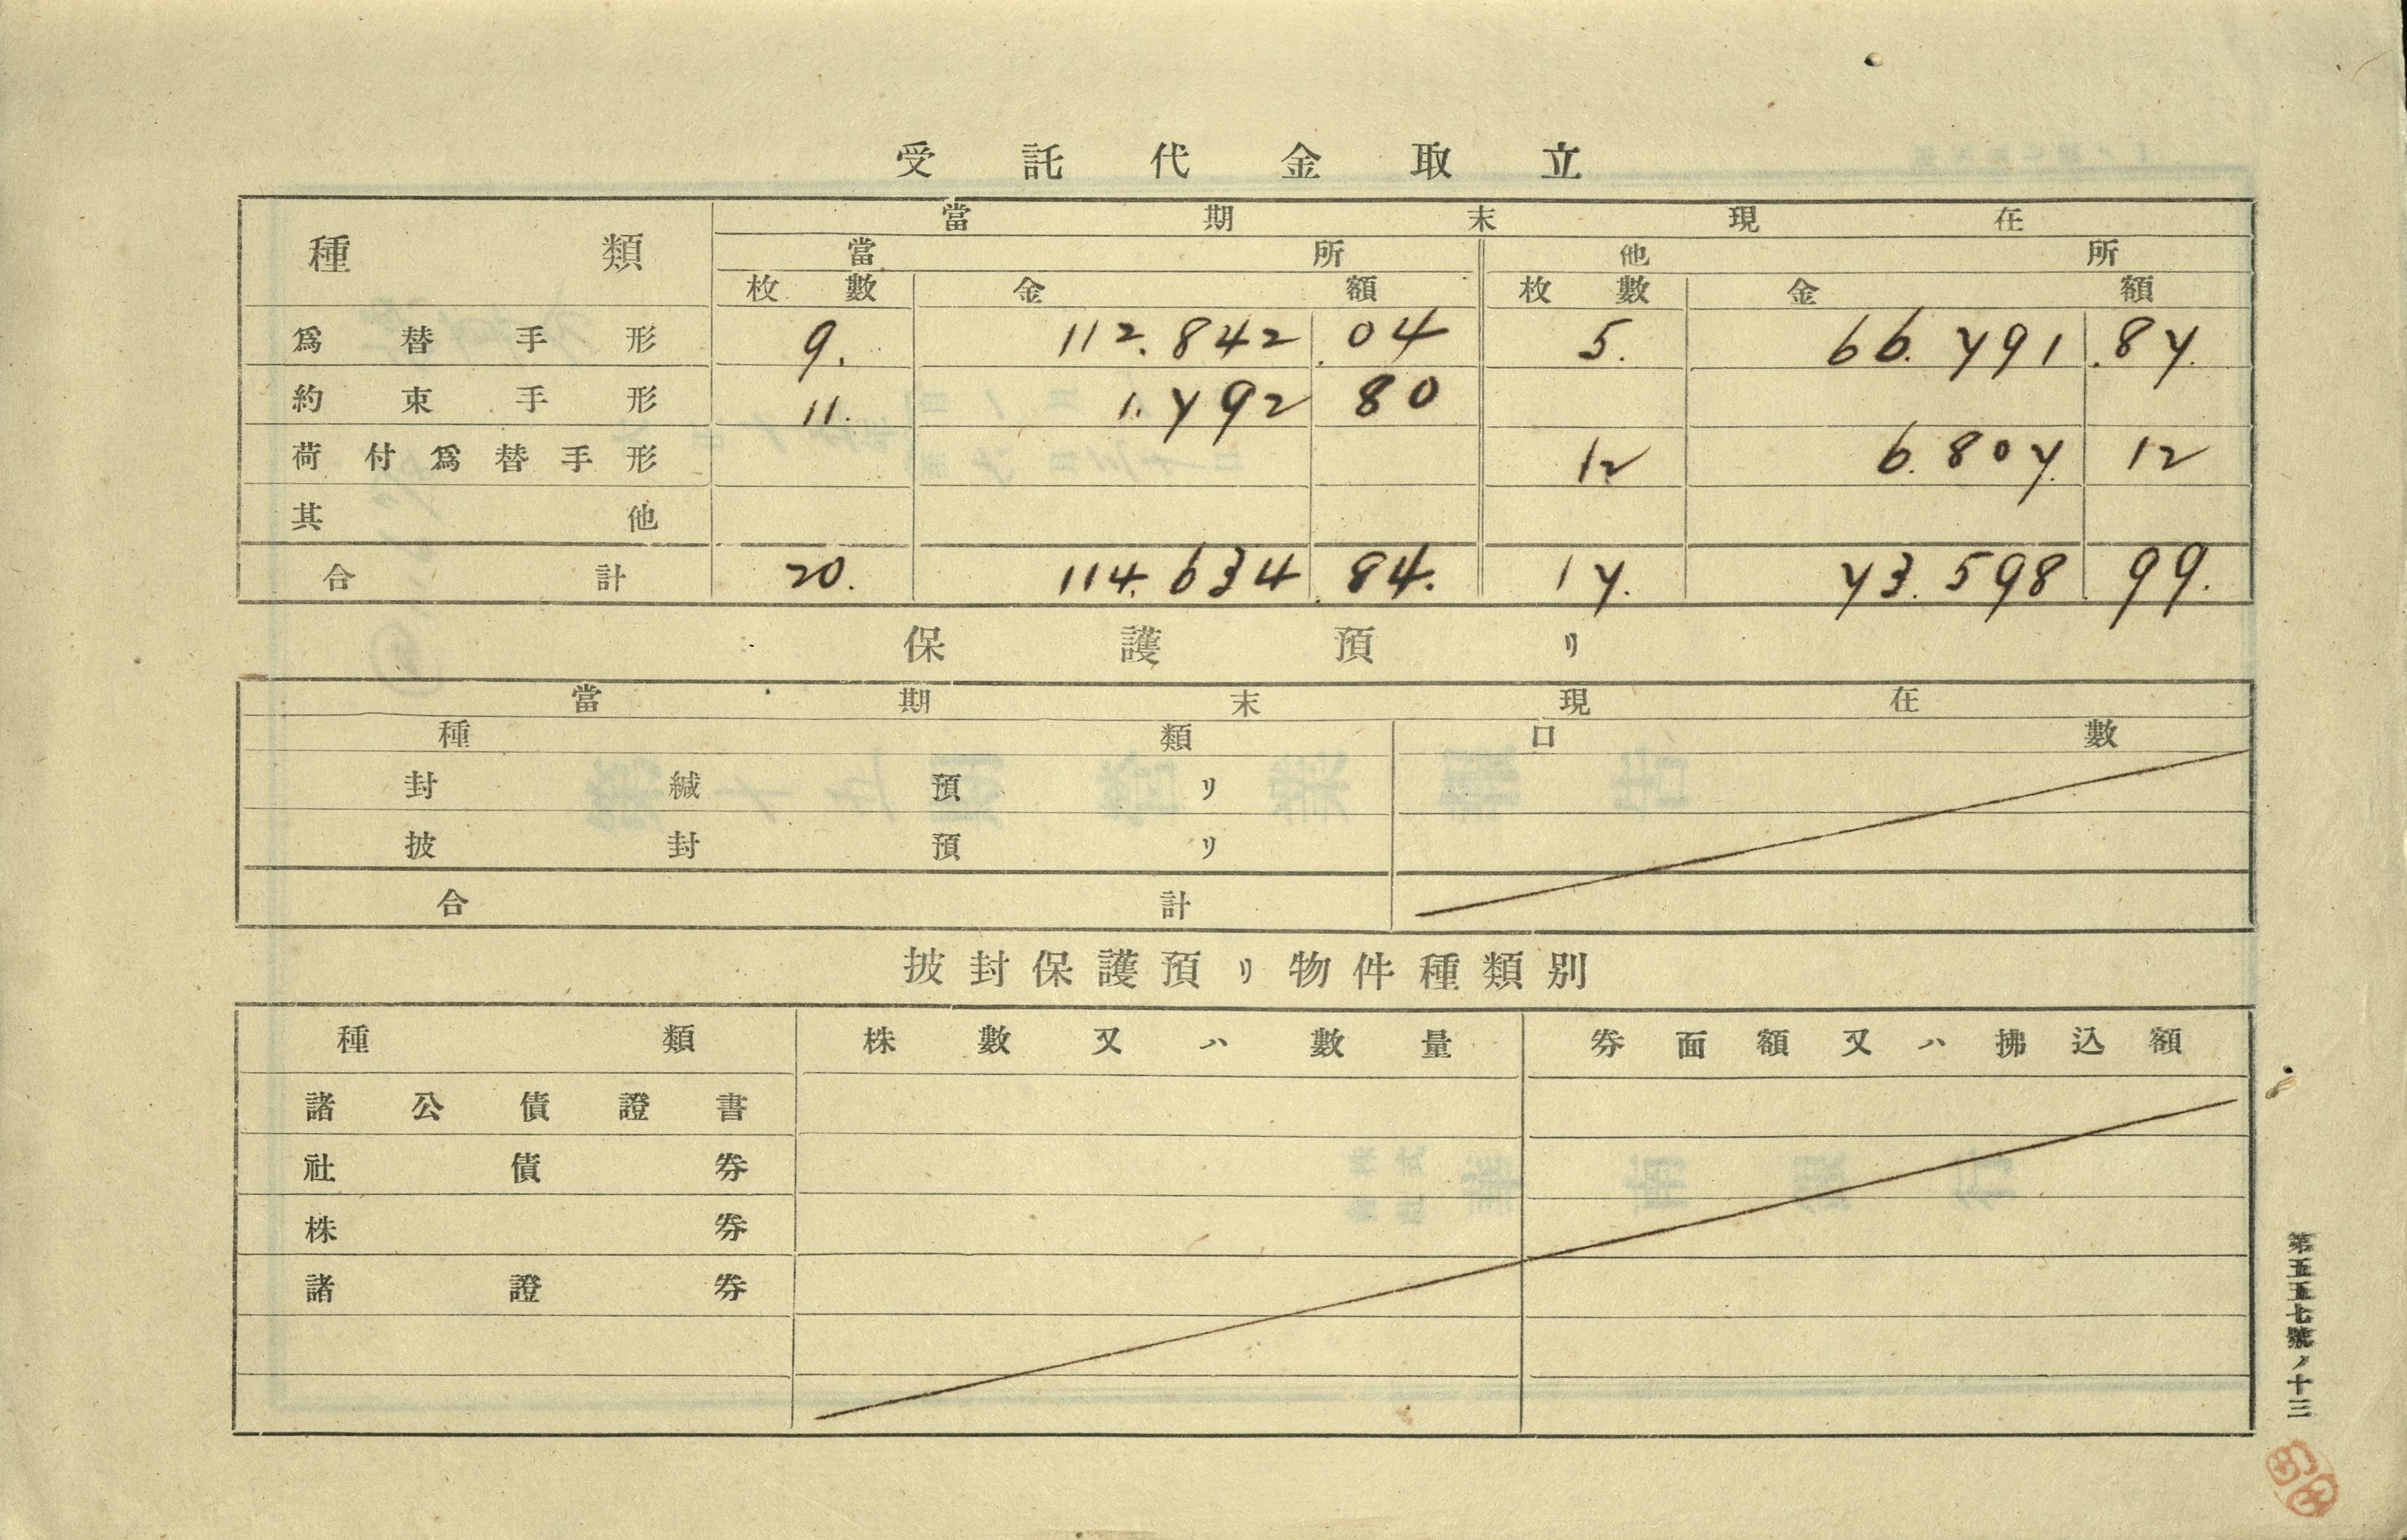 受託代金取立
種類 當期末現在
當所 他所
枚數 金額 枚數 金額
爲替手形 9. 112.842.04 5. 66.791.87.
約束手形 11. 1.792 80
荷付爲替手形 12 6.807. 12
其他
合計 20. 114.634.84. 17. 73.598 99.
保護預リ
當期末現在
種類 口數
封緘預リ
披封預リ
合計
披封保護預リ物件種類別
種類 株數又ハ數量 券面額又ハ拂込額
諸公債證書
社債券
株券
諸證券
第五五七號ノ十三